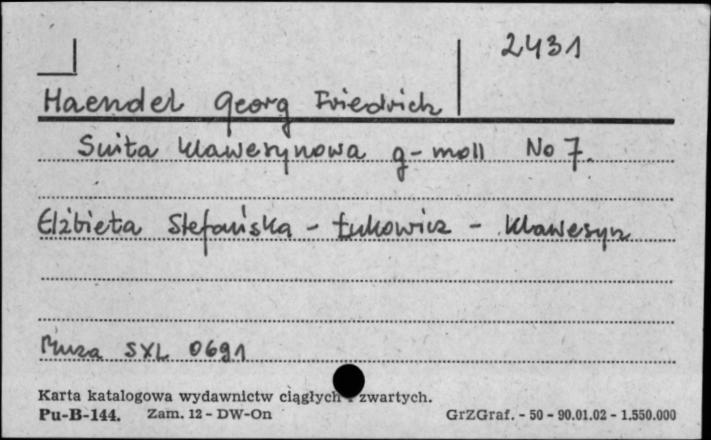 2431
Haendel Georg Friedrich
Suita klawesynowa g-moll No 7.
Elżbieta Stefańska - Łukowicz - klawesyn
Muza SXL 0691
Karta katalogowa wydawnictw ciągłych i zwartych.
Pu-B-144. Zam. 12 - DW-On GrZGraf. - 50 - 90.01.02 - 1.550.000